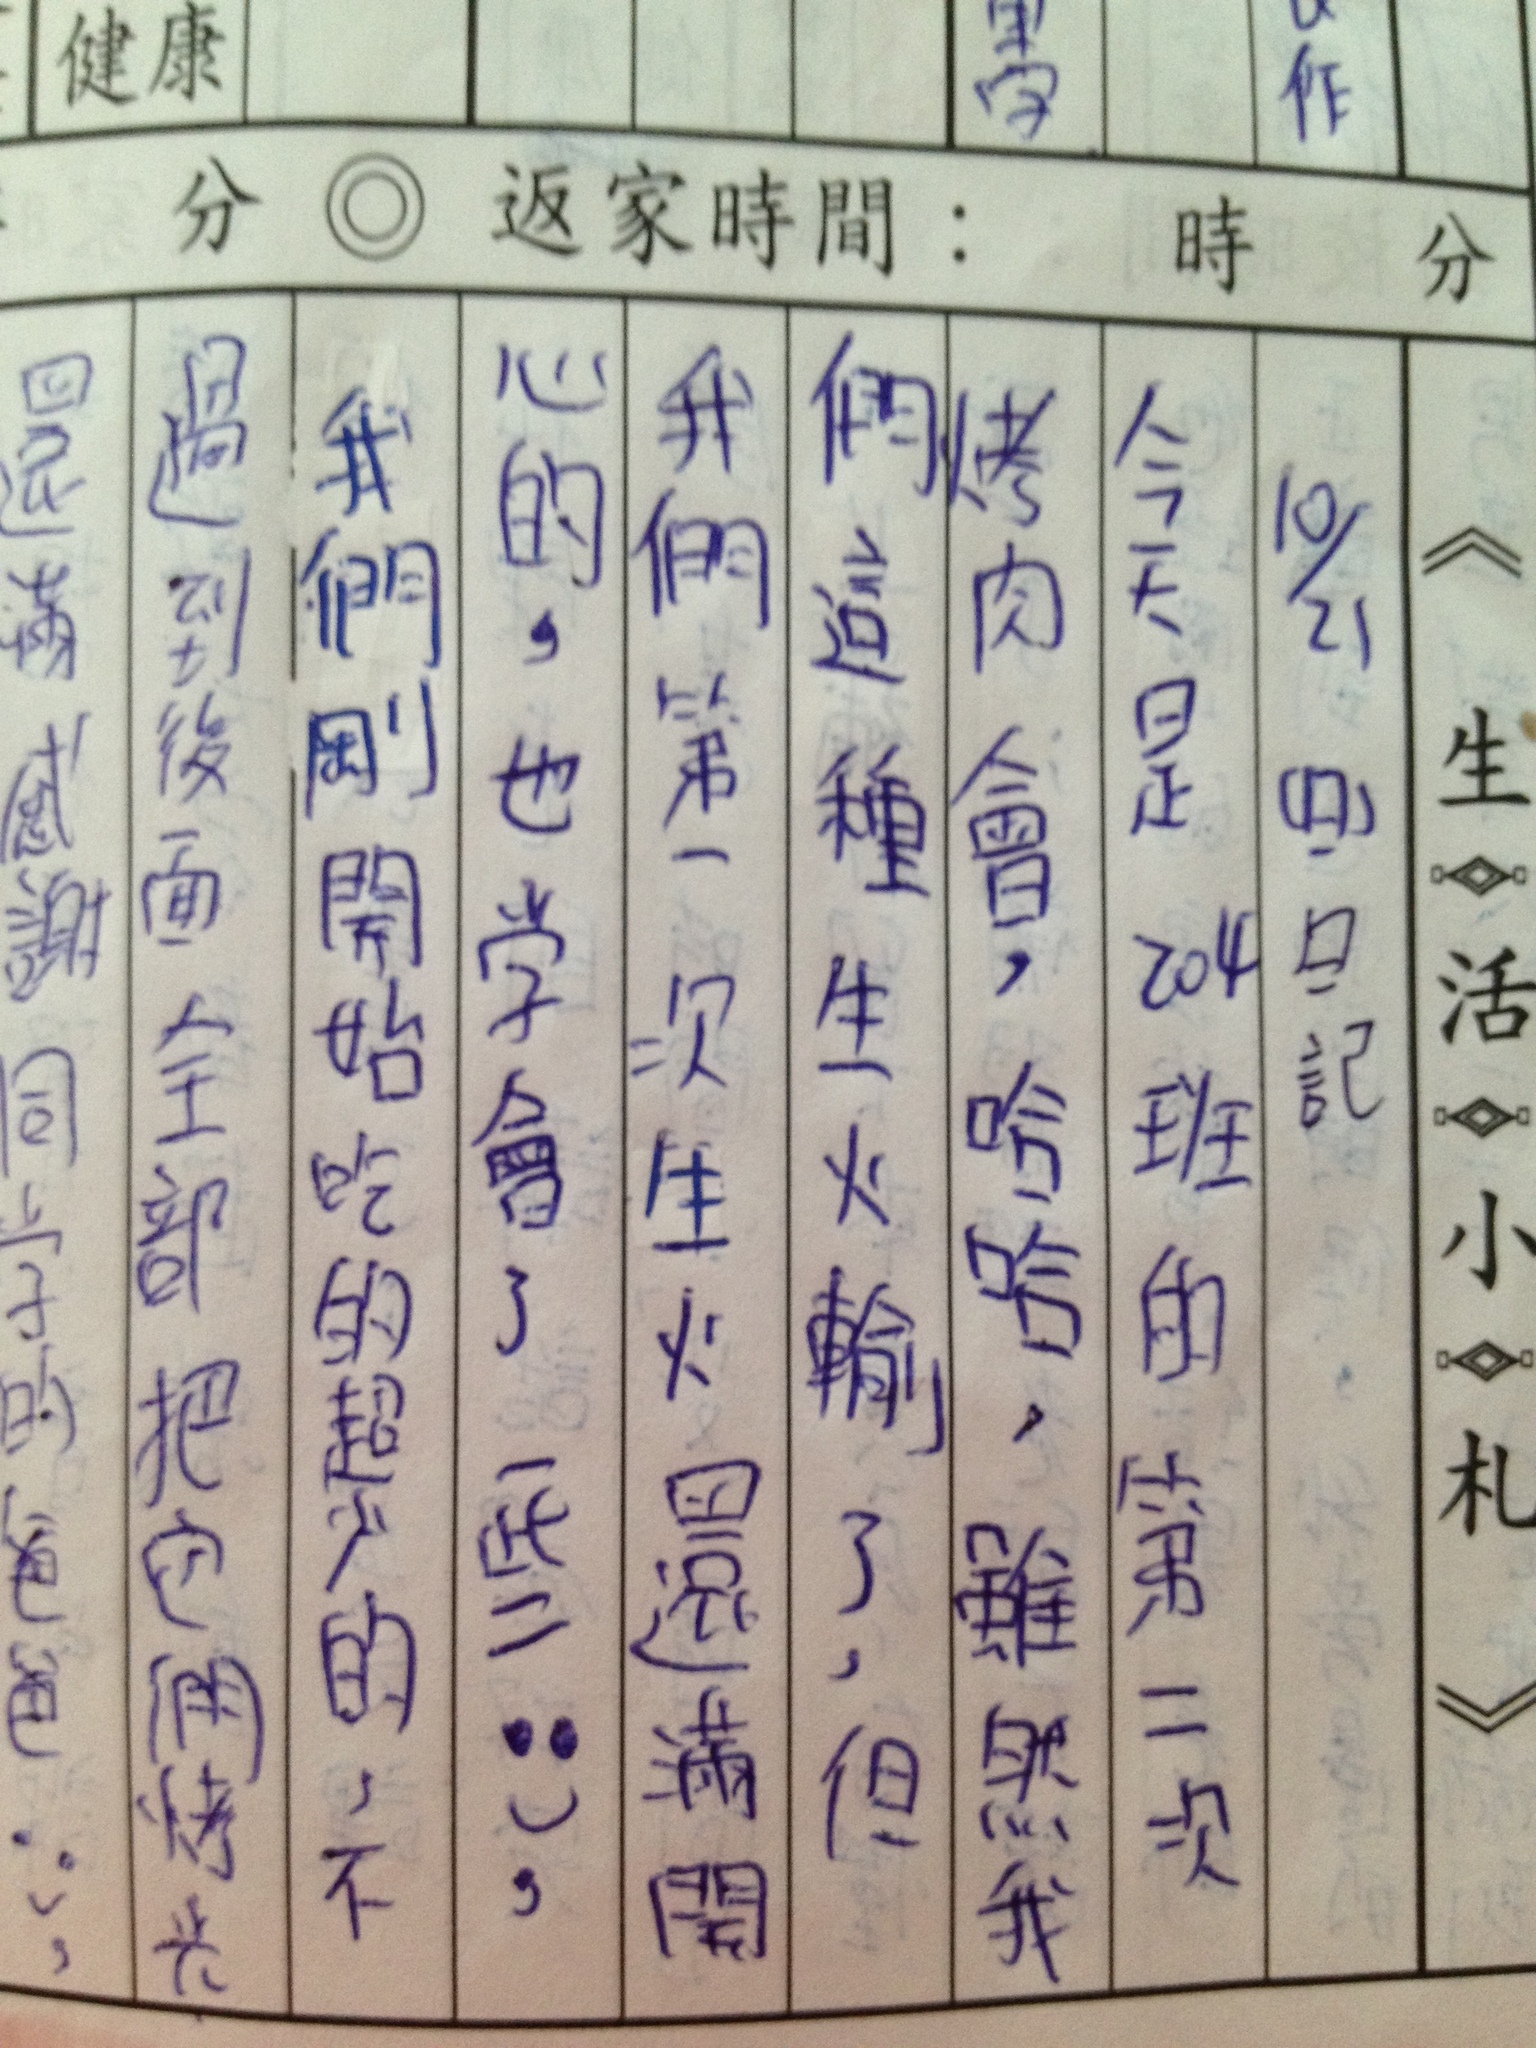 健康
分◎返家時間: 時 分
《生活小札》
10/21 (四)日記
今天是204班的第二次
烤肉會,哈哈,雖然我
們這種生火輸了,但
我們第一次生火還滿開
心的,也学會了一些:),
我們剛開始吃的超少的,不
過到後面全部把它們烤光
還滿感謝同学的爸爸:),